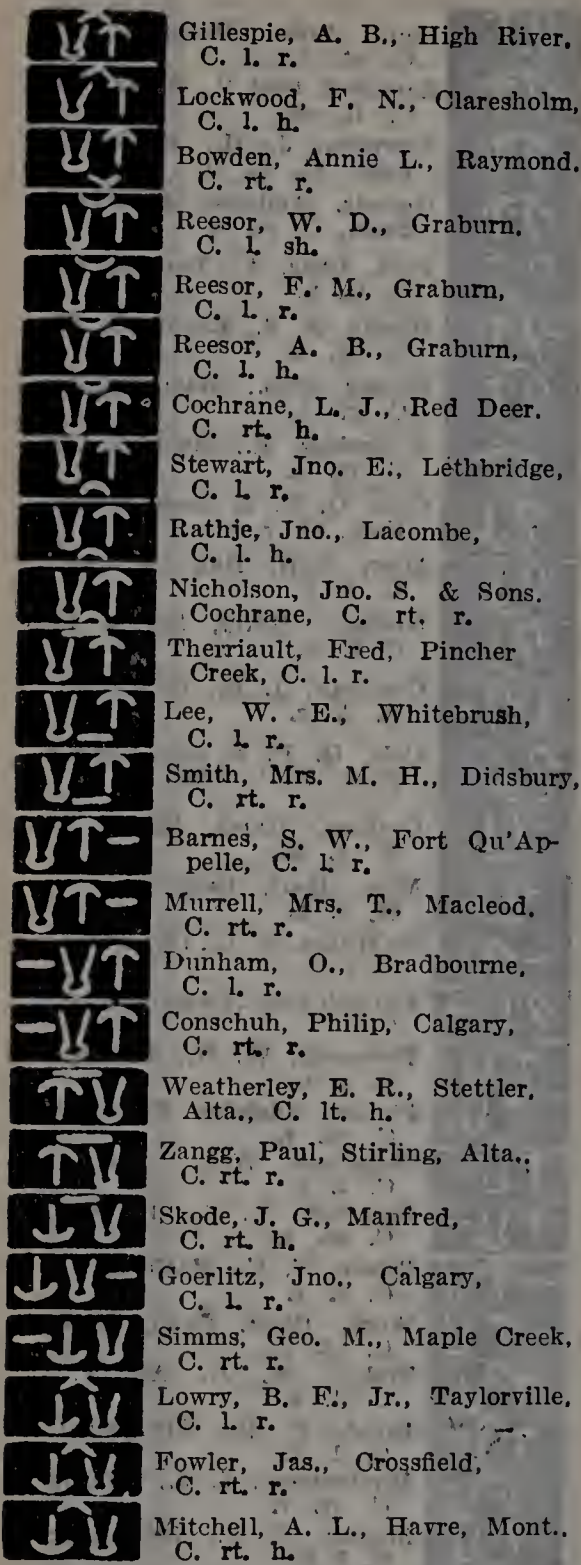 Gillespie, A. B., High River,
C. l. r.
Lockwood, F. N., Claresholm,
C. l. h.
Bowden, Annie L., Raymond.
C. rt. r.
Reesor, W. D., Graburn,
C. l. sh.
Reesor, F. M., Graburn,
C. l. r.
Reesor, A. B., Graburn,
C. l. h.
Cochrane, L. J., Red Deer.
C. rt. h.
Stewart, Jno. E., Lethbridge,
C. l. r.
Rathje, Jno., Lacombe,
C. l. h.
Nicholson, Jno. S. & Sons.
Cochrane, C. rt. r.
Therriault, Fred, Pincher
Creek, C. l. r.
Lee, W. E., Whitebrush,
C. l. r.
Smith, Mrs. M. H., Didsbury,
C. rt. r.
Barnes, S. W., Fort Qu'Ap-
pelle, C. l. r.
Murrell, Mrs. T., Macleod,
C. rt. r.
Dunham, O., Bradbourne,
C. l. r.
Conschuh, Philip, Calgary,
C. rt. r.
Weatherley, E. R., Stettler,
Alta., C. lt. h.
Zangg, Paul, Stirling, Alta.,
C. rt. r.
Skode, J. G., Manfred,
C. rt. h.
Goerlitz, Jno., Calgary,
C. l. r.
Simms, Geo. M., Maple Creek,
C. rt. r.
Lowry, B. F., Jr., Taylorville,
C. l. r.
Fowler, Jas., Crossfield,
C. rt. r.
Mitchell, A. L., Havre, Mont.,
C. rt. h.